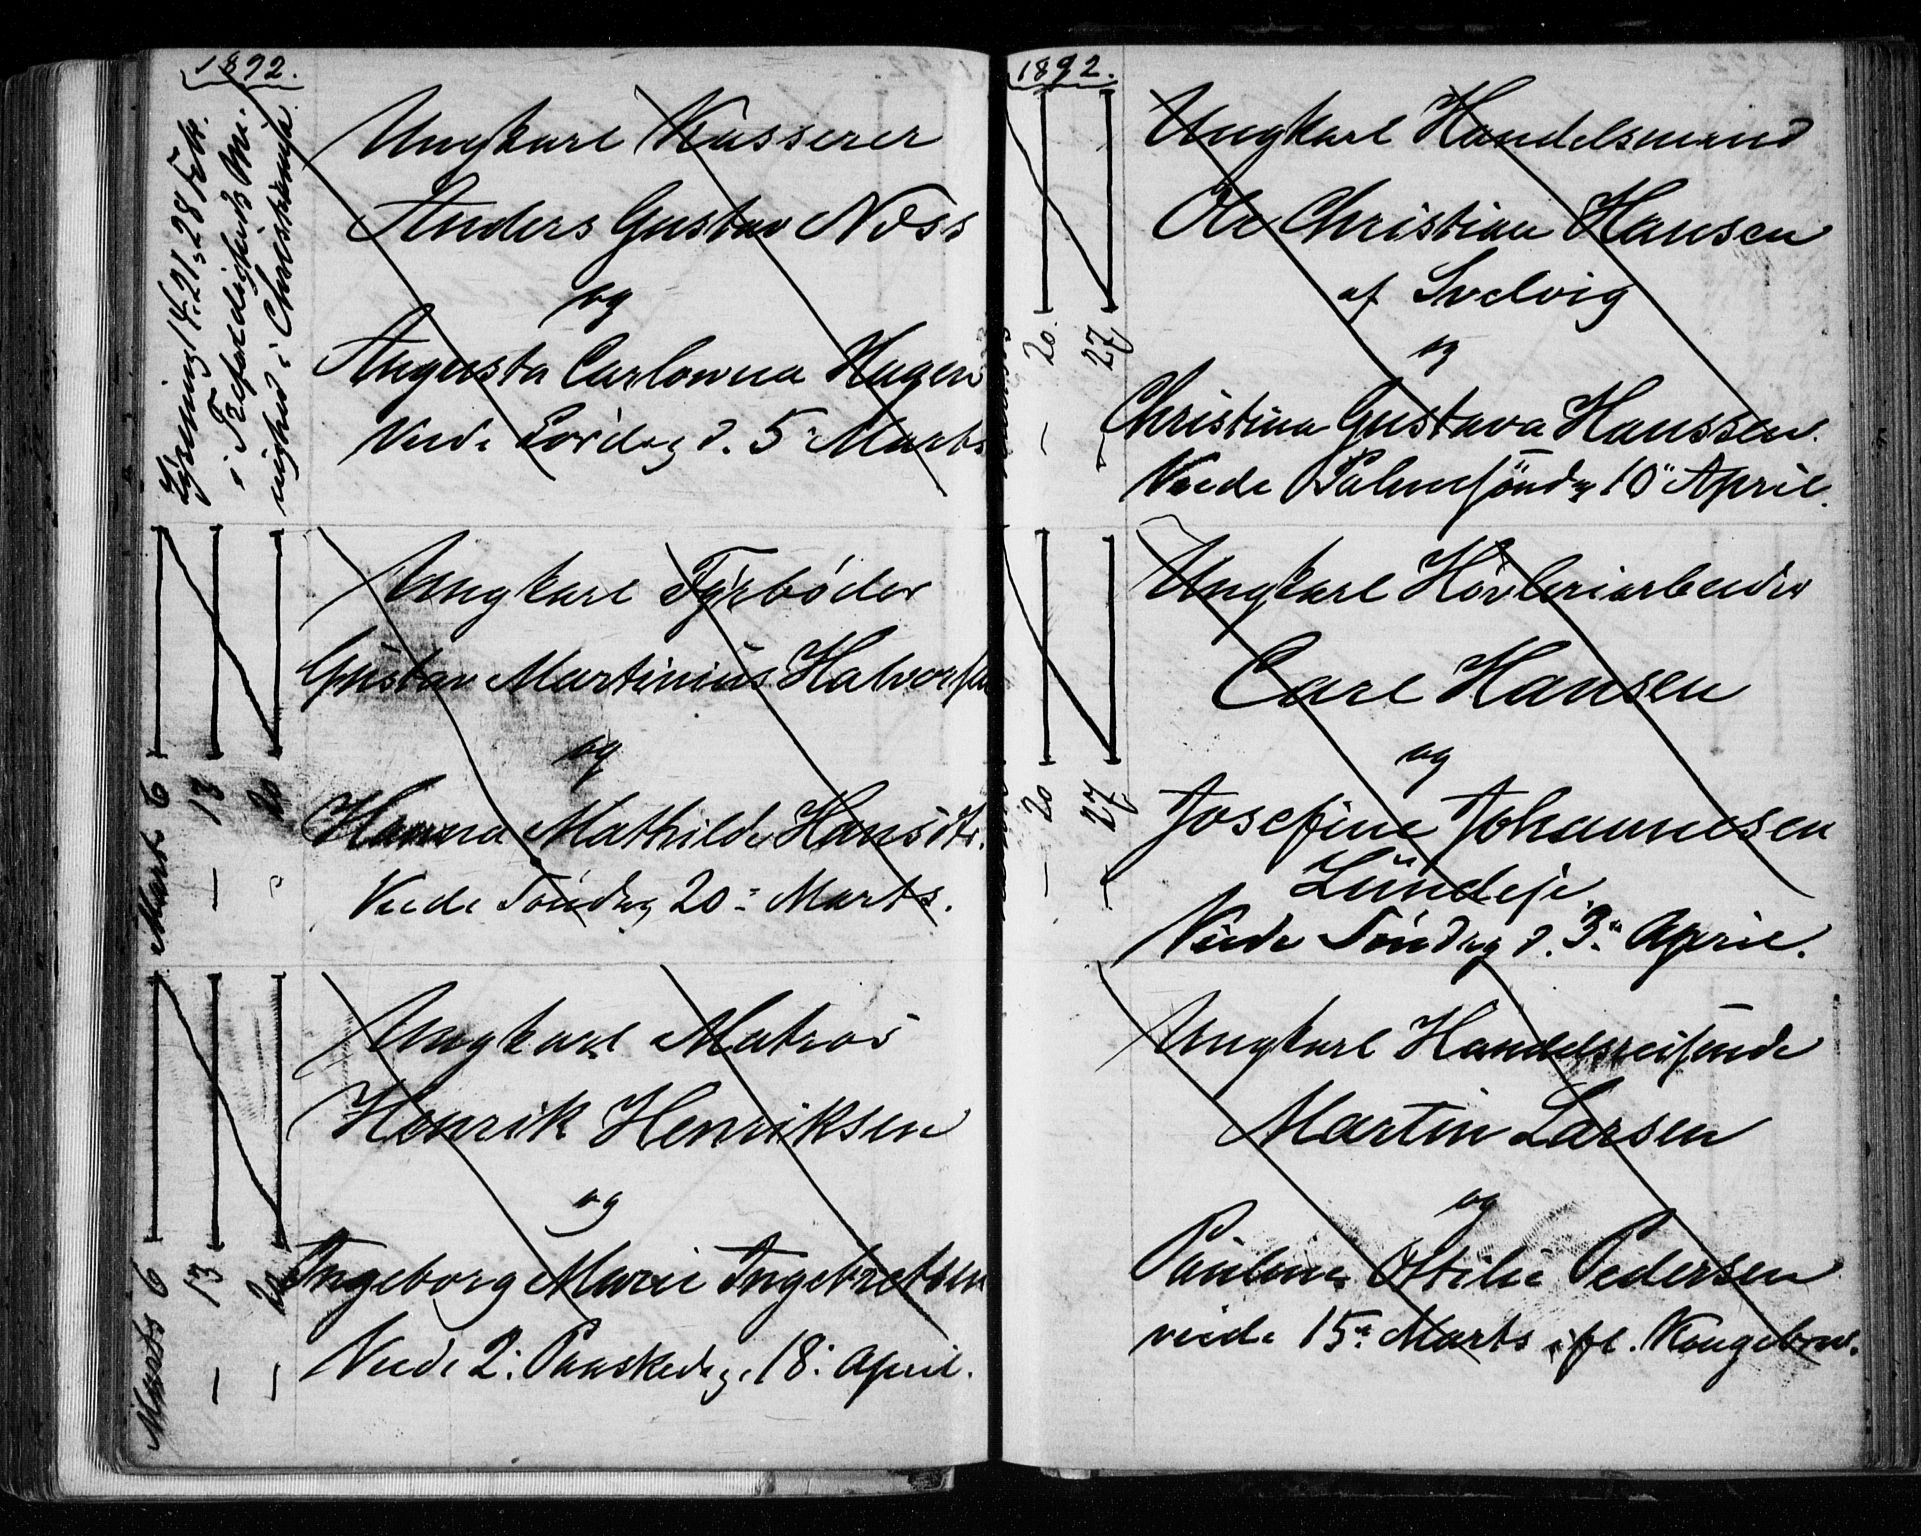 1892.
Lysning 14, 21, 28 Feb.
i Trefoldigheds Me-
nighed i Christiania.
Ungkarl Kasserer
Anders Gustav Næss
og
Augusta Carlowna Hagen
Viede Lørdag d. 5 Marts
Marts 6
— 13
— 20
Ungkarl Fyrbøder
Gustav Martinius Halvorsen
og
Hanna Mathilde Hansdtr.
Viede Søndag 20 Marts.
Marts 6
— 13
— 20
Ungkarl Matros
Henrik Henriksen
og
Ingeborg Marie Ingebretsen
Viede 2: Paaskedag, 18: April.
1892.
— 20.
— 27
Ungkarl Handelsmand
Ole Christian Hansen
af Svelvig
og
Christina Gustava Hanssen.
Viede Palmesøndag 10 April.
— 20
— 27
Ungkarl Høvleriarbeider
Carl Hansen
og
Josefine Johannesen
Lundeje.
Viede Søndag d. 3. April.
Ungkarl Handelsreisende
Martin Larsen
og
Pauline Ottilie Pedersen
viede 15 Marts ifl. Kongebrev.